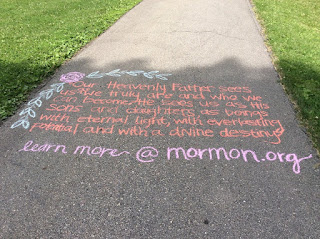 Our Heavenly Father sees
us as we truly are and who we
can become. He sees us as His
sons and daughters, as beings
with eternal light, with everlasting
potential and with a divine destiny
learn more @ mormon.org